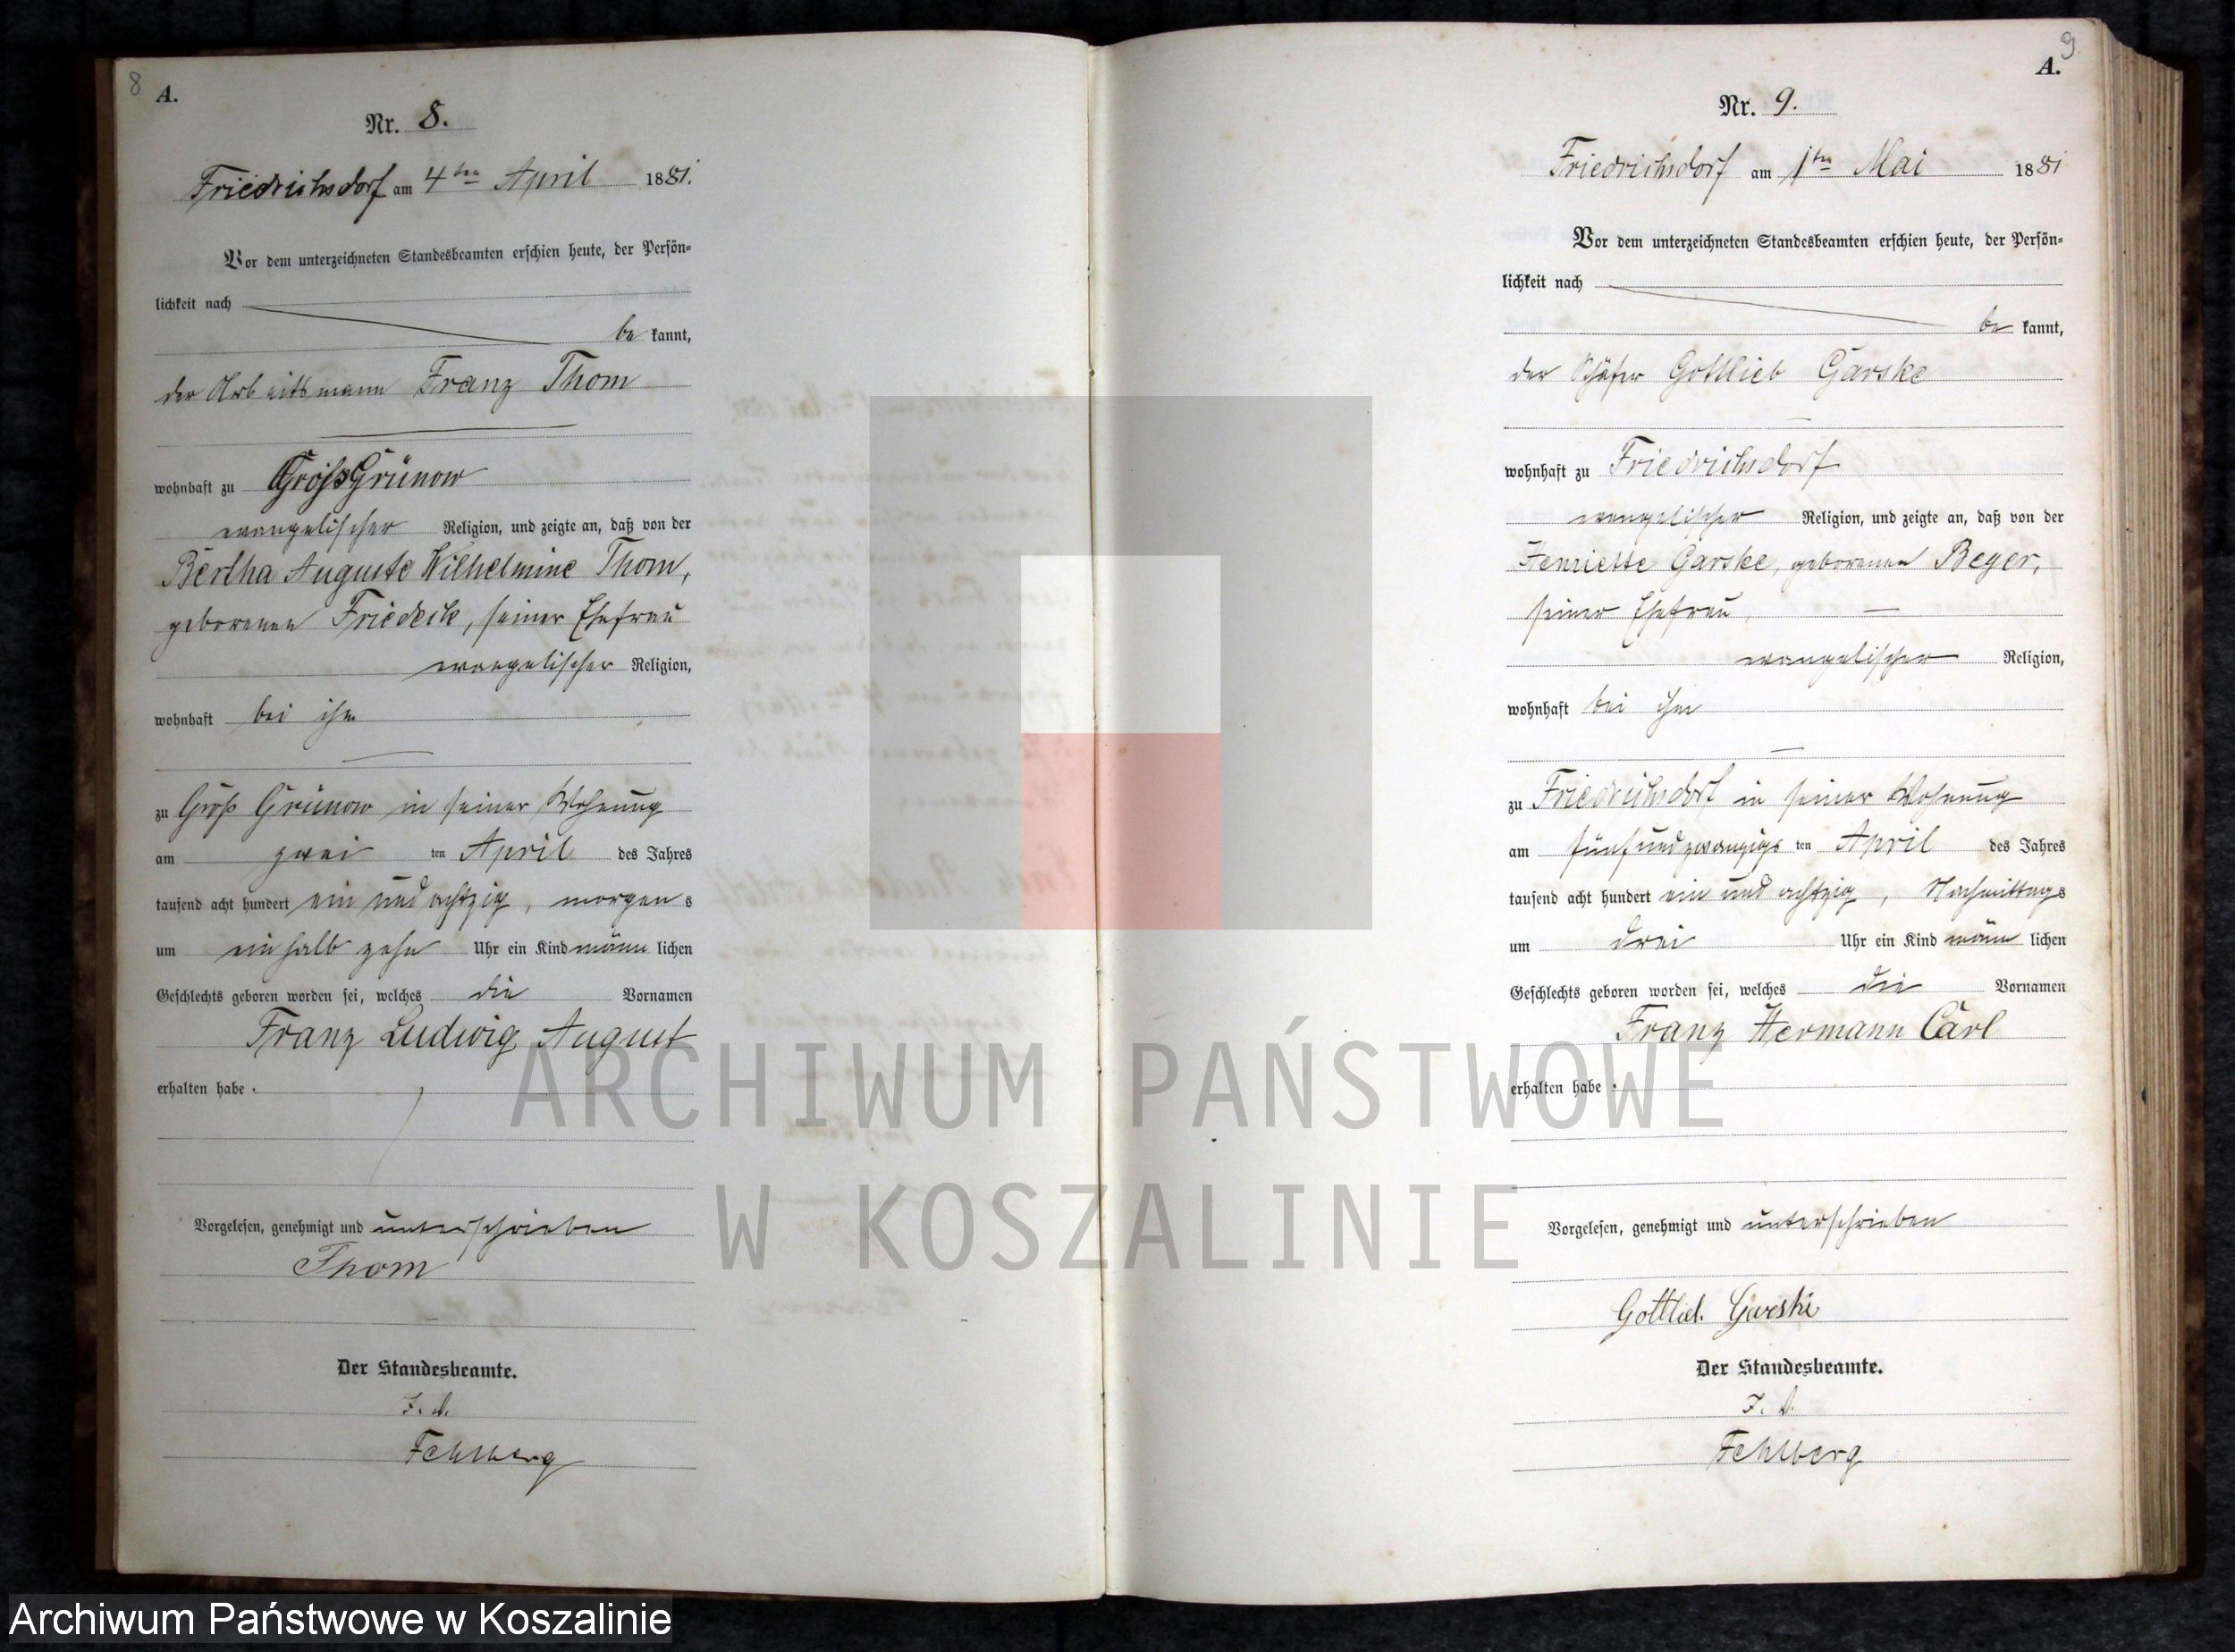 8
A.
Nr. 8.
Friedrichsdorf am 4ten April 1881.
Vor dem unterzeichneten Standesbeamten erschien heute, der Persön-
lichkeit nach
be kannt,
der Arbeitsmann Franz Thom
wohnhaft zu Groß Grünow
evangelischer Religion, und zeigte an, daß von der
Bertha Auguste Wilhelmine Thom,
geborenen Friedeck, seiner Ehefrau
evangelischer Religion,
wohnhaft bei ihm
zu Groß Grünow in seiner Wohnung
am zwei ten April des Jahres
tausend acht hundert ein und achtzig, morgen s
um ein halb zehn Uhr ein Kind männ lichen
Geschlechts geboren worden sei, welches die Vornamen
Franz Ludwig August
erhalten habe.
Vorgelesen, genehmigt und unterschrieben
Thom
Der Standesbeamte.
Fehlberg
9
A.
Nr. 9.
Friedrichsdorf am 1ten Mai 1881
Vor dem unterzeichneten Standesbeamten erschien heute, der Persön-
lichkeit nach
be kannt,
der Schäfer Gottlieb Garske
wohnhaft zu Friedrichsdorf
evangelischer Religion, und zeigte an, daß von der
Henriette Garske, geborenen Beger,
seiner Ehefrau,
evangelischer Religion,
wohnhaft bei ihm
zu Friedrichsdorf in seiner Wohnung
am fünfundzwanzigs ten April des Jahres
tausend acht hundert ein und achtzig, Nachmittag s
um drei Uhr ein Kind männ lichen
Geschlechts geboren worden sei, welches die Vornamen
Franz Hermann Carl
erhalten habe.
Vorgelesen, genehmigt und unterschrieben
Gottlieb Garske
Der Standesbeamte.
Fehlberg
ARCHIWUM PAŃSTWOWE
W KOSZALINIE
Archiwum Państwowe w Koszalinie